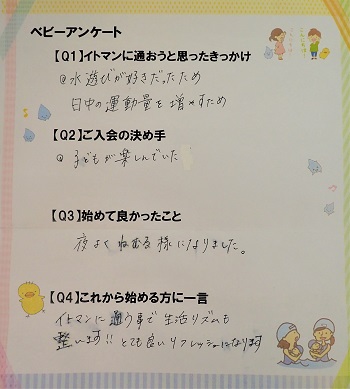 ベビーアンケート
【Q1】イトマンに通おうと思ったきっかけ
@水遊びが好きだったため
日中の運動量を増やすため
【Q2】ご入会の決め手
@子どもが楽しんでいた
【Q3】始めて良かったこと
夜よくねむる様になりました。
【Q4】これから始める方に一言
イトマンに通う事で生活リズムも
整います!!とても良いリフレッシュになります